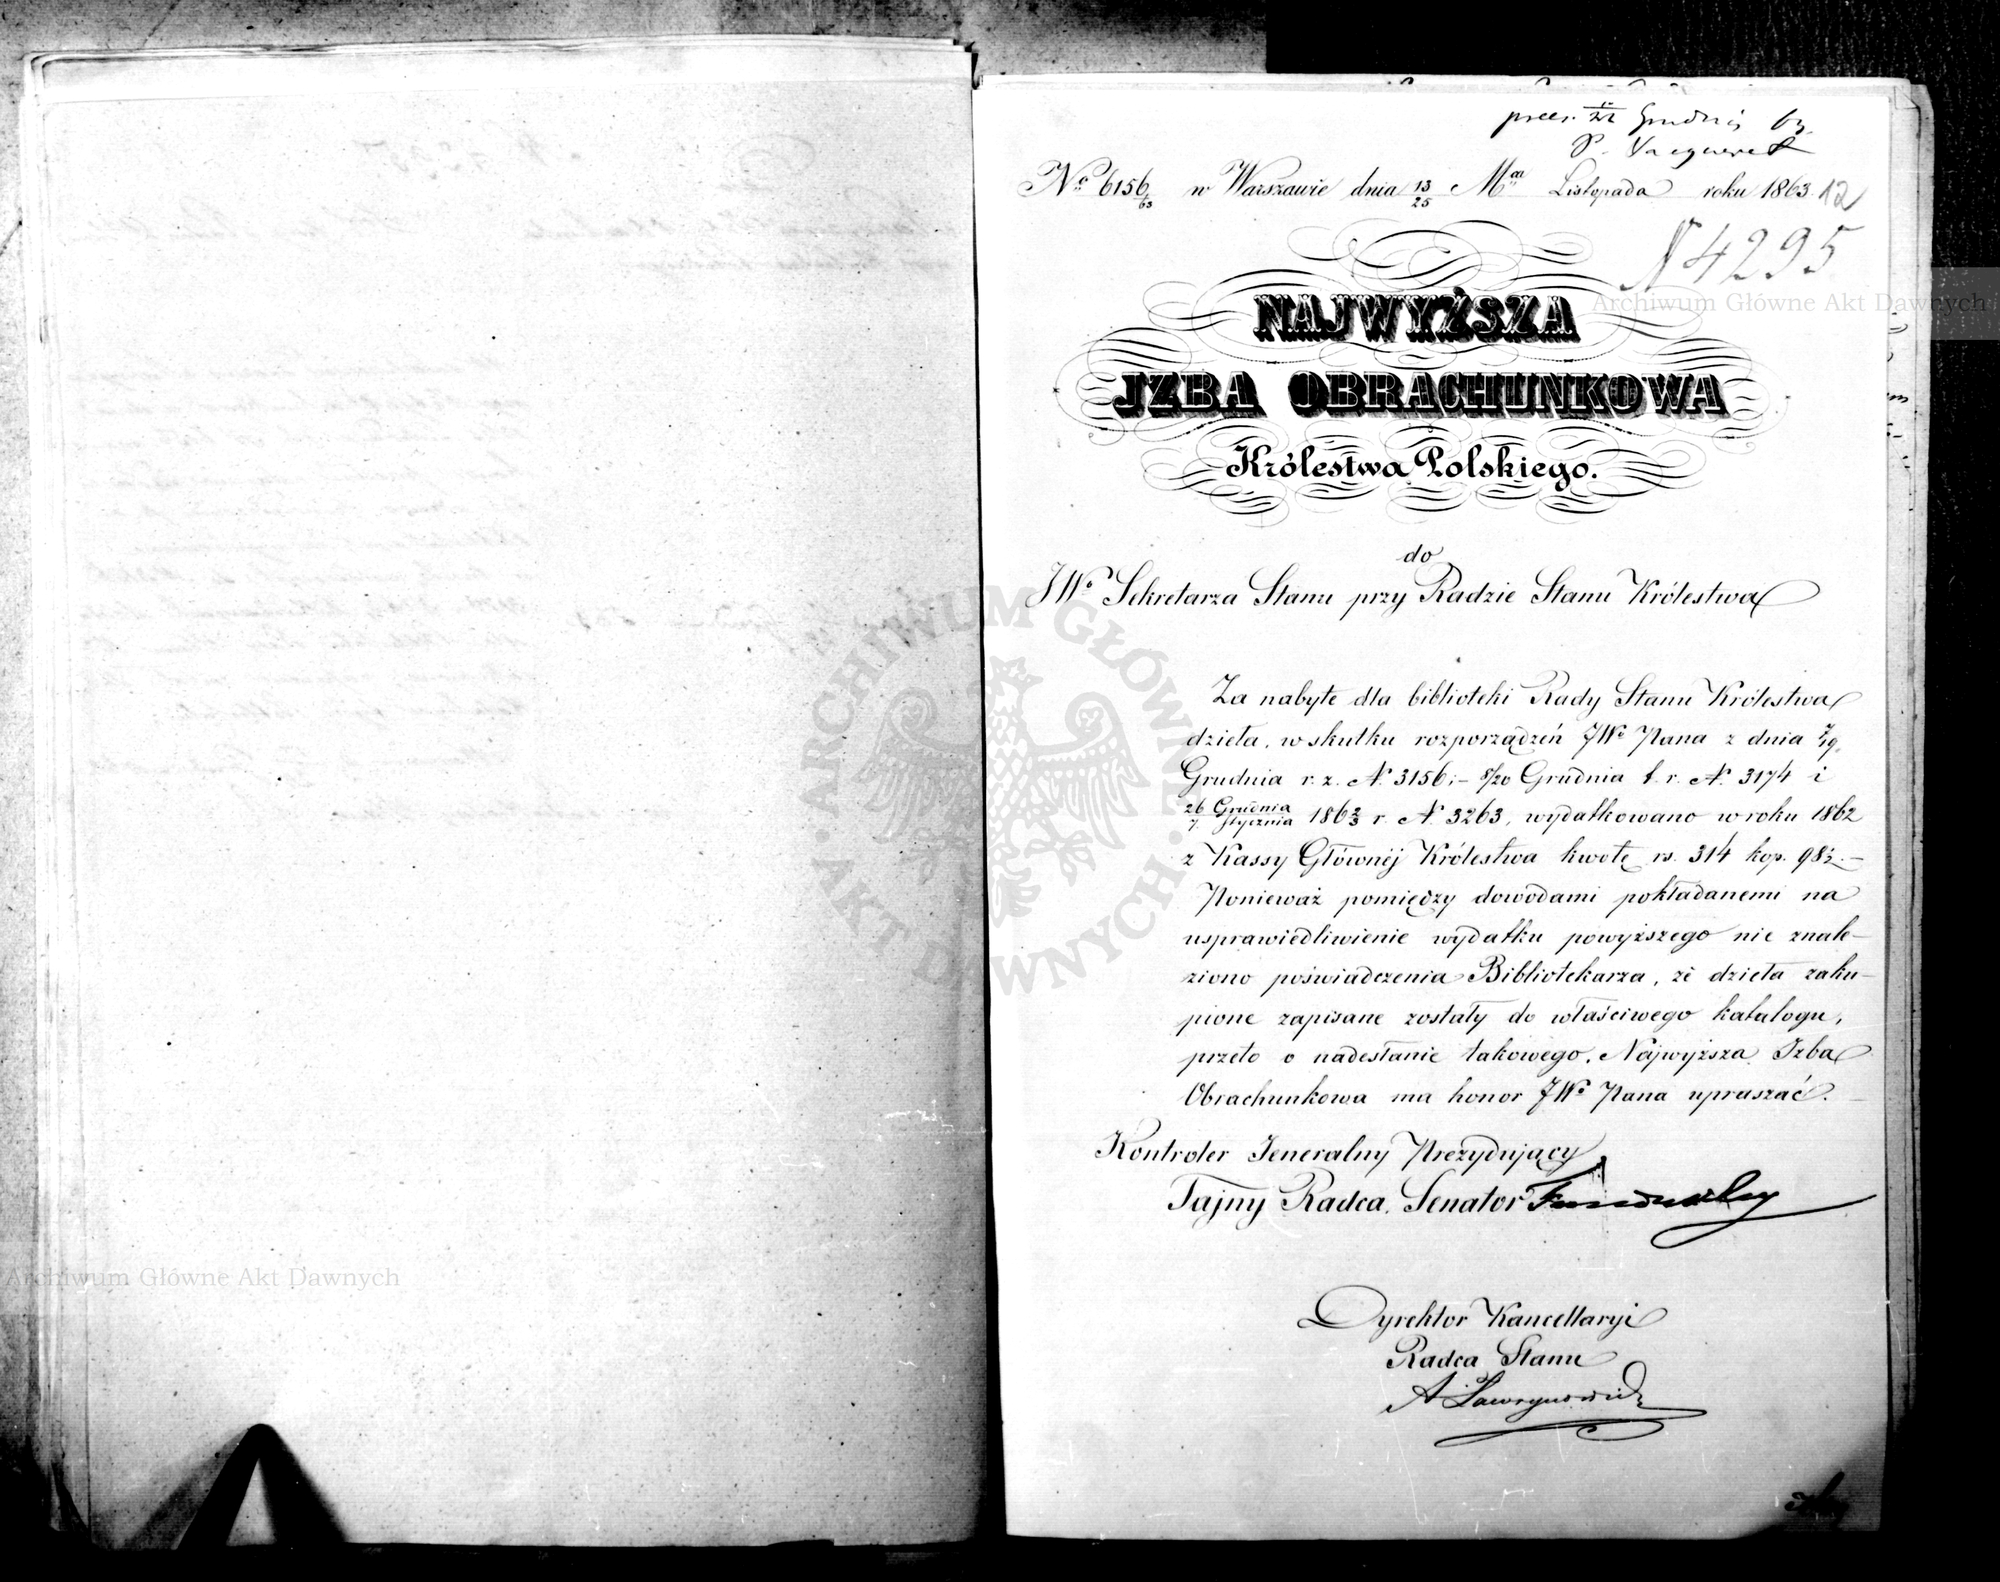 præs. Grudnia 63.
No 6156/63 w Warszawie dnia 13/25 Mca Listopada roku 1863. 12
N 4295
NAJWYŻSZA
JZBA OBRACHUNKOWA
Królestwa Polskiego.
do
JWo Sekretarza Stanu przy Radzie Stanu Królestwa
Za nabyte dla biblioteki Rady Stanu Królestwa
dzieła, w skutku rozporządzeń JWo Pana z dnia 7/19
Grudnia r. z. N. 3156; – 8/20 Grudnia t. r. N. 3174 i
26 Grudnia/7 Stycznia 1862/3 r. N. 3263, wydatkowano w roku 1862
z Kassy Głównéj Królestwa kwotę rs. 314 kop. 98½. –
Ponieważ pomiędzy dowodami pokładanemi na
usprawiedliwienie wydatku powyższego nie znale-
ziono poświadczenia Bibliotekarza, że dzieła zaku-
pione zapisane zostały do właściwego katalogu,
przeto o nadesłanie takowego, Najwyższa Izba
Obrachunkowa ma honor JWo Pana upraszać. –
Kontroler Jeneralny Prezydujący
Tajny Radca, Senator
Dyrektor Kancellaryi
Radca Stanu
A. Ławrynowicz
Archiwum Główne Akt Dawnych
Archiwum Główne Akt Dawnych
ARCHIWUM GŁÓWNE AKT DAWNYCH